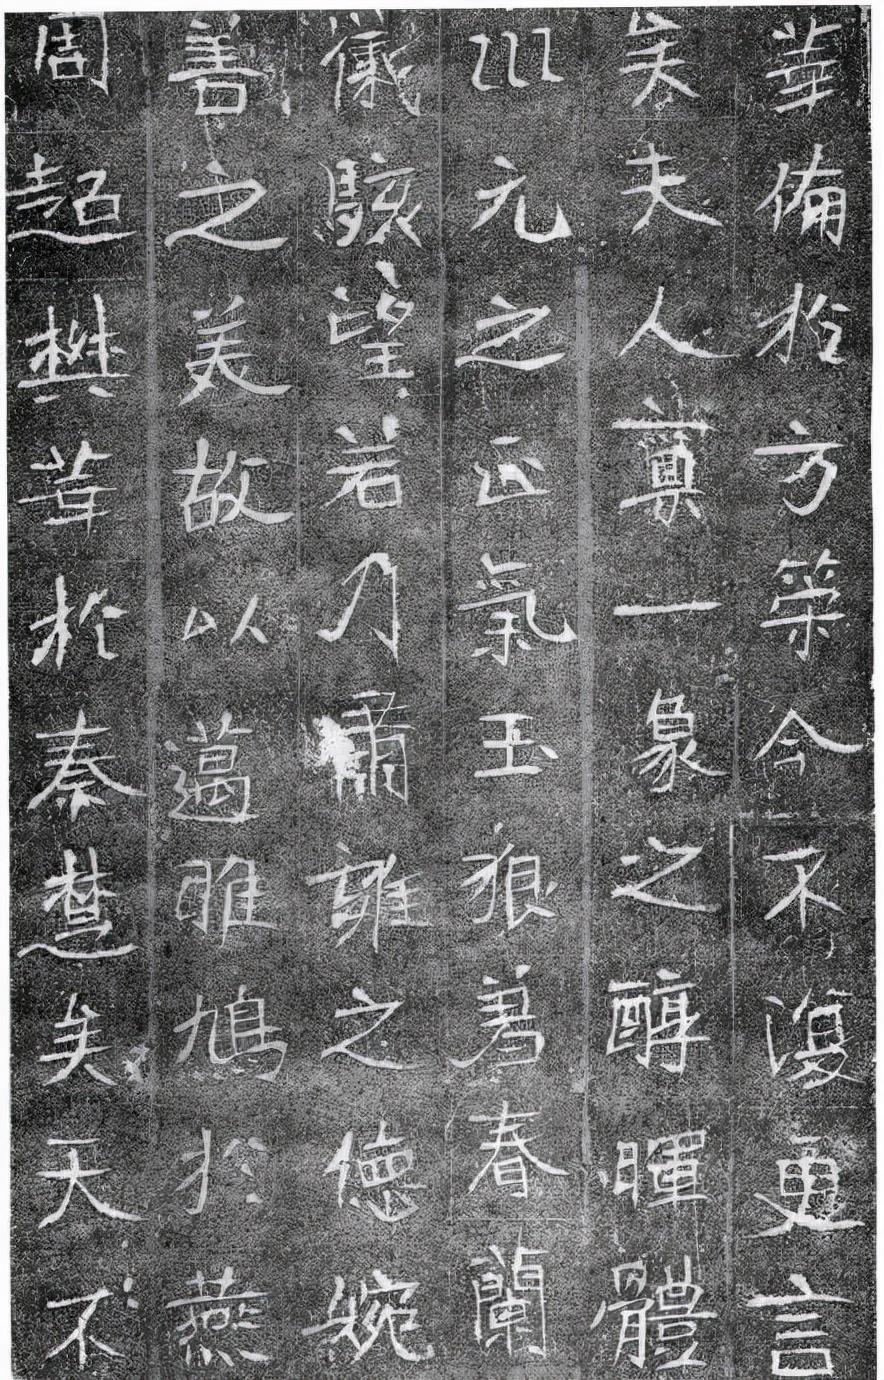 華備於方策今不復更言
矣夫人稟一象之醇暉體
巛元之正氣玉狠羞春蘭
儀駭望若乃肅雍之德婉
善之美故以邁雎鳩於燕
周超樊於秦楚矣天不